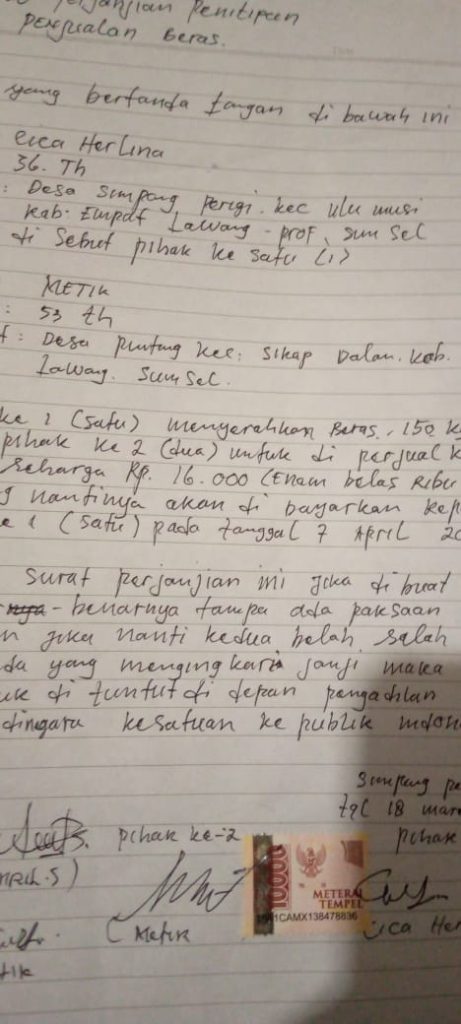 Perjanjian Penitipan
Penjualan Beras.
yang bertanda tangan di bawah ini
Eica Herlina
36. Th
: Desa Simpang perigi. kec ulu musi
kab. Empat Lawang - prof. Sum Sel
di Sebut pihak ke satu (1)
METIK
: 53 th
: Desa puntang kec. Sikap Dalam. kab.
Lawang. Sumsel.
ke 1 (satu) menyerahkan Beras. 150 k
pihak ke 2 (dua) untuk di perjual k
seharga Rp. 16.000 (Enam belas Ribu
g nantinya akan di bayarkan kep
e 1 (satu) pada tanggal 7 April 20
Surat perjanjian ini jika di buat
- benarnya tampa ada paksaan
n jika nanti kedua belah salah
da yang mengingkari janji maka
uk di tuntut di depan pengadilan
dinegara kesatuan republik indon
Simpang pe
tgl 18 mare
pihak ke-2 pihak
10000
METERAI
TEMPEL
CAMX138478836
( Metik ica Her
tik